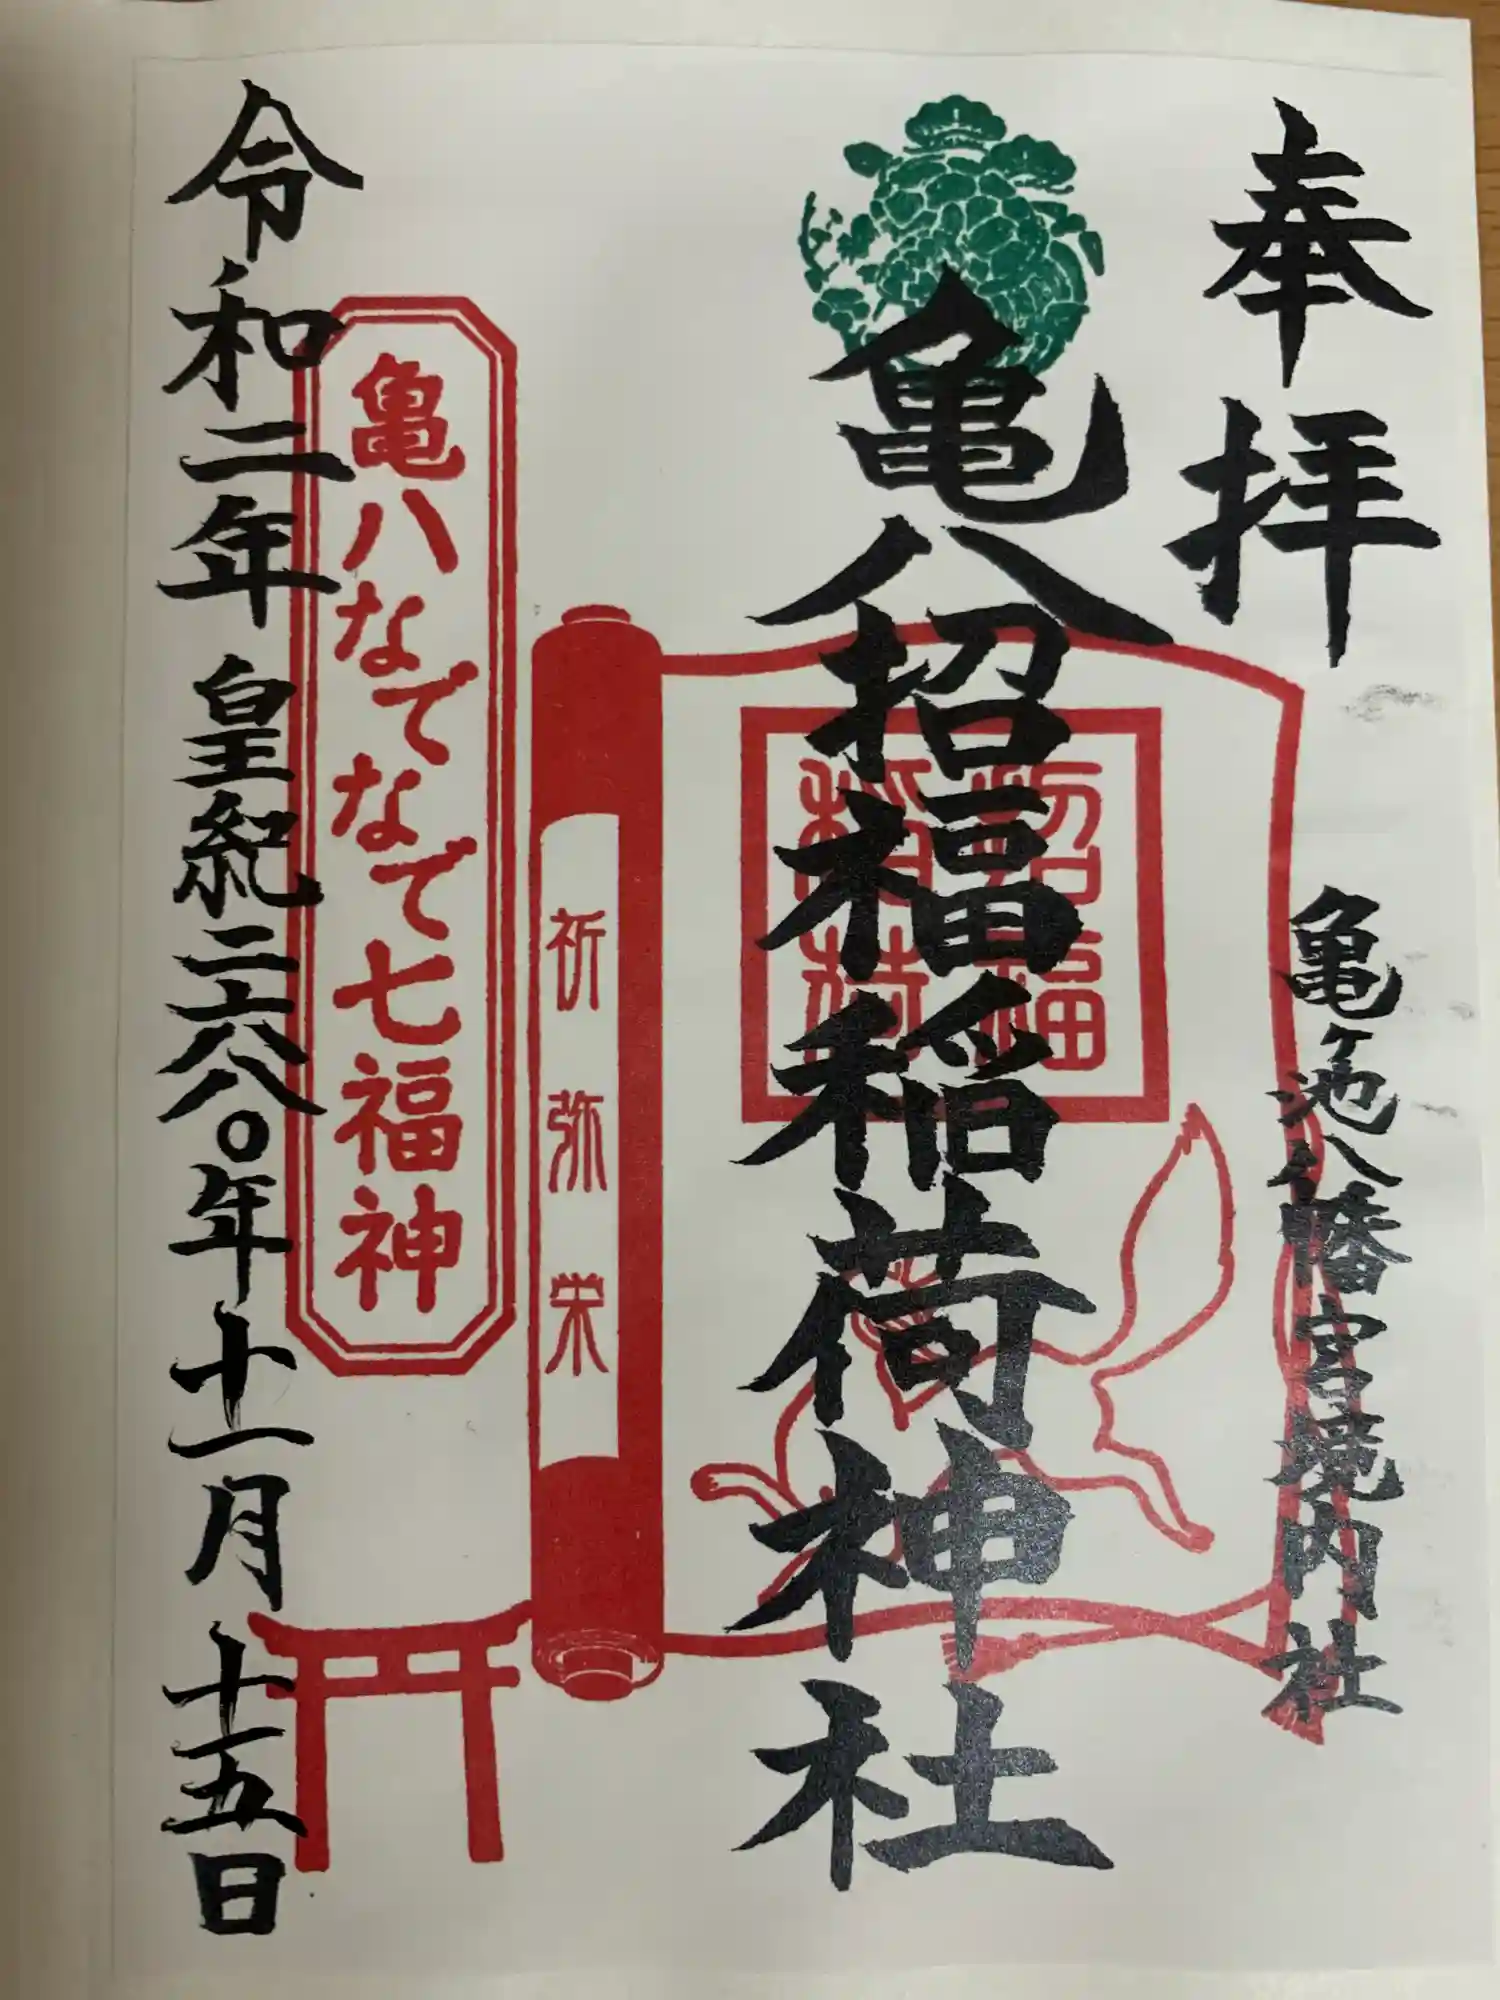 奉拝
亀ヶ池八幡宮境内社
亀八招福稲荷神社
招福
稲荷
祈弥栄
亀八なでなで七福神
令和二年皇紀二六八〇年十一月十五日